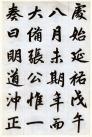 慶始延祐戊午
八月未期年而
大備張公惟一
奏曰明道沖正